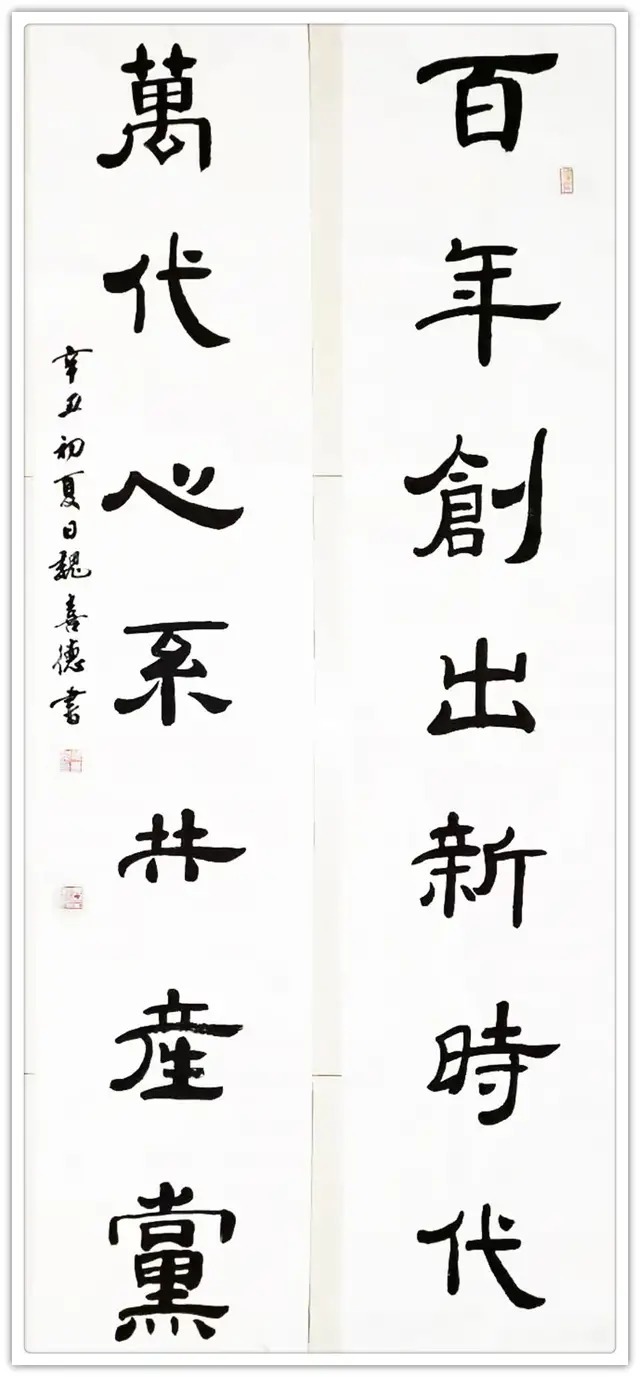 百年創出新時代
萬代心系共產黨
辛丑初夏日魏喜德書